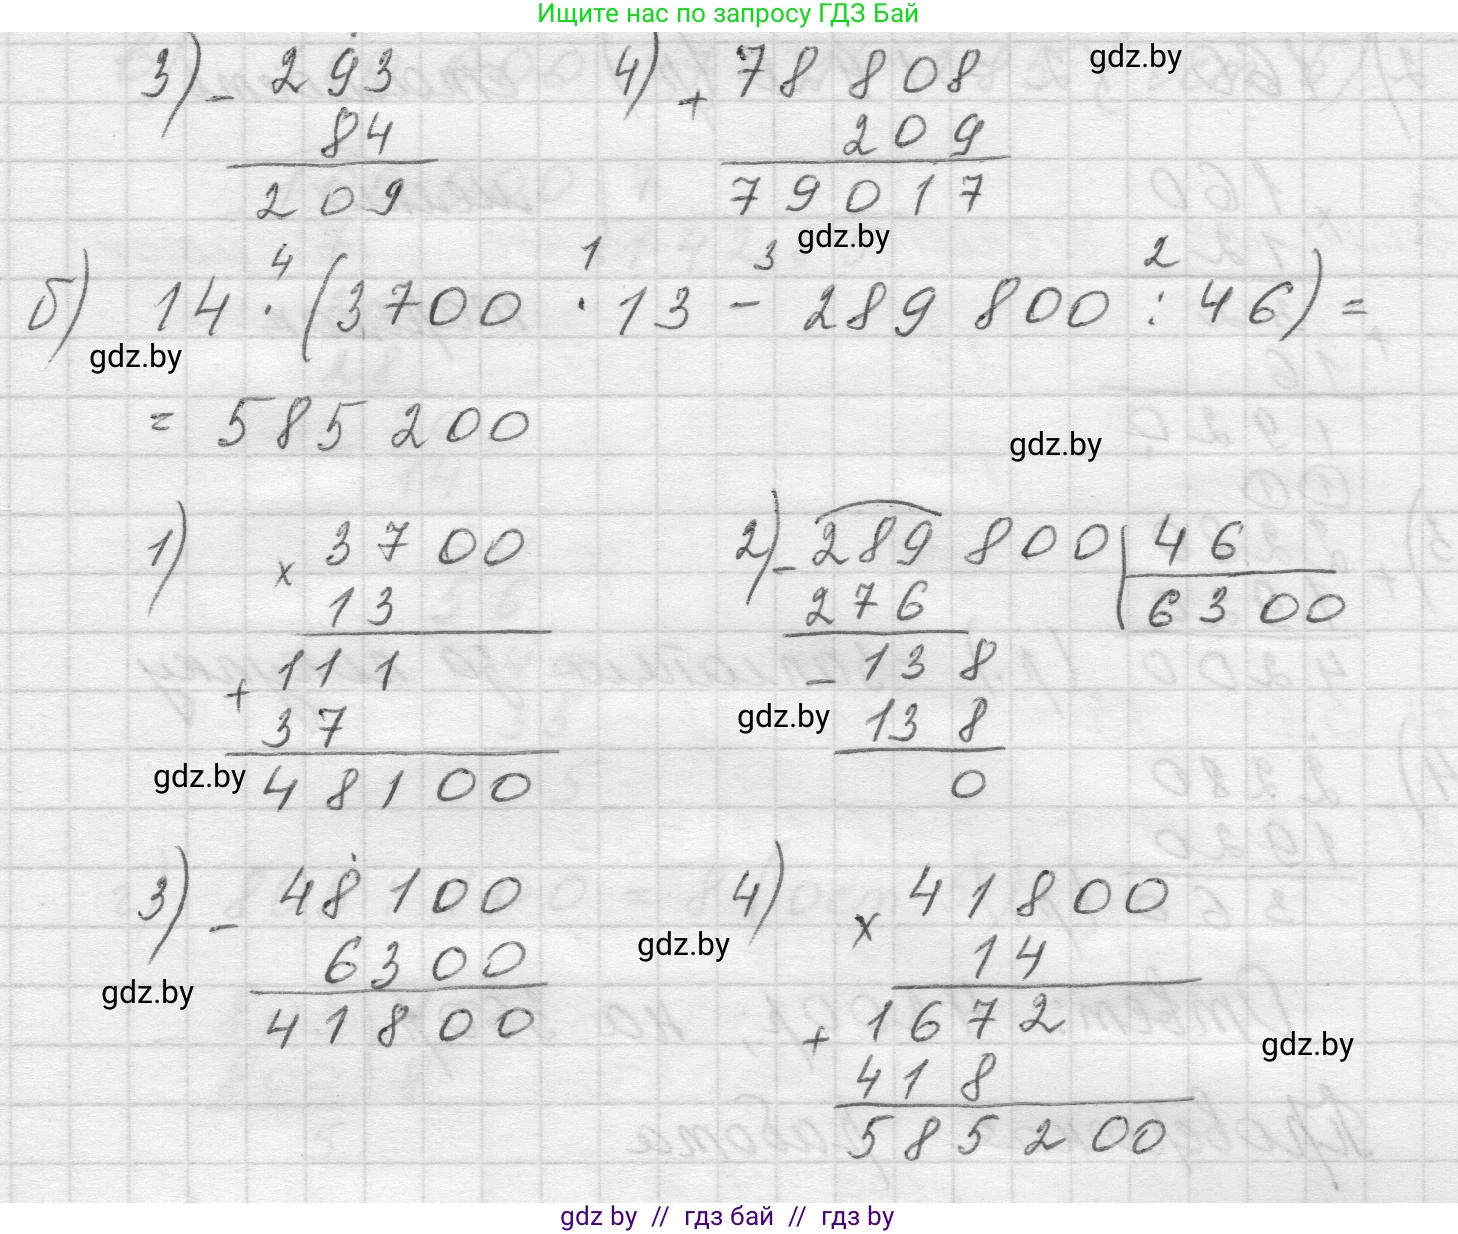 Ищите нас по запросу ГДЗ Бай
3) - 293 4) + 78 808 gdz.by
84 209
209 79017
gdz.by
4 1 3 2
б) 14 · (3700 · 13 - 289 800 : 46) =
gdz.by
= 585 200
gdz.by
1) × 3700 2) - 289 800 | 46
13 276 6300
+ 111 - 138
37 gdz.by 138
gdz.by 48100 0
3) - 48100 4) × 41800
6300 gdz.by 14
gdz.by
41800 + 1672
gdz.by
418
585200
gdz by // гдз бай // gdz by